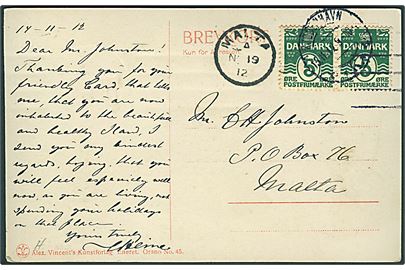 14-11-12
Dear Mr. Johnston!
Thanking you for your
friendly Card, that tells
me, that you are now
inhabited to the beautiful
and healthy Island, I
send you my kindest
regards, hoping, that you
will feel especially well
now, as you are living, not
spending your holidays
on that place
Yours truly
BREV
Kun for
MALTA
4
NO 19
12
HAVN
DANMARK
5
ØRE
POSTFRIMÆRKE
DANMARK
5
ØRE
POSTFRIMÆRKE
Mr. C H Johnston
P.O Box 76
Malta
Alex. Vincent's Kunstforlag. Eneret. Grano No. 45.